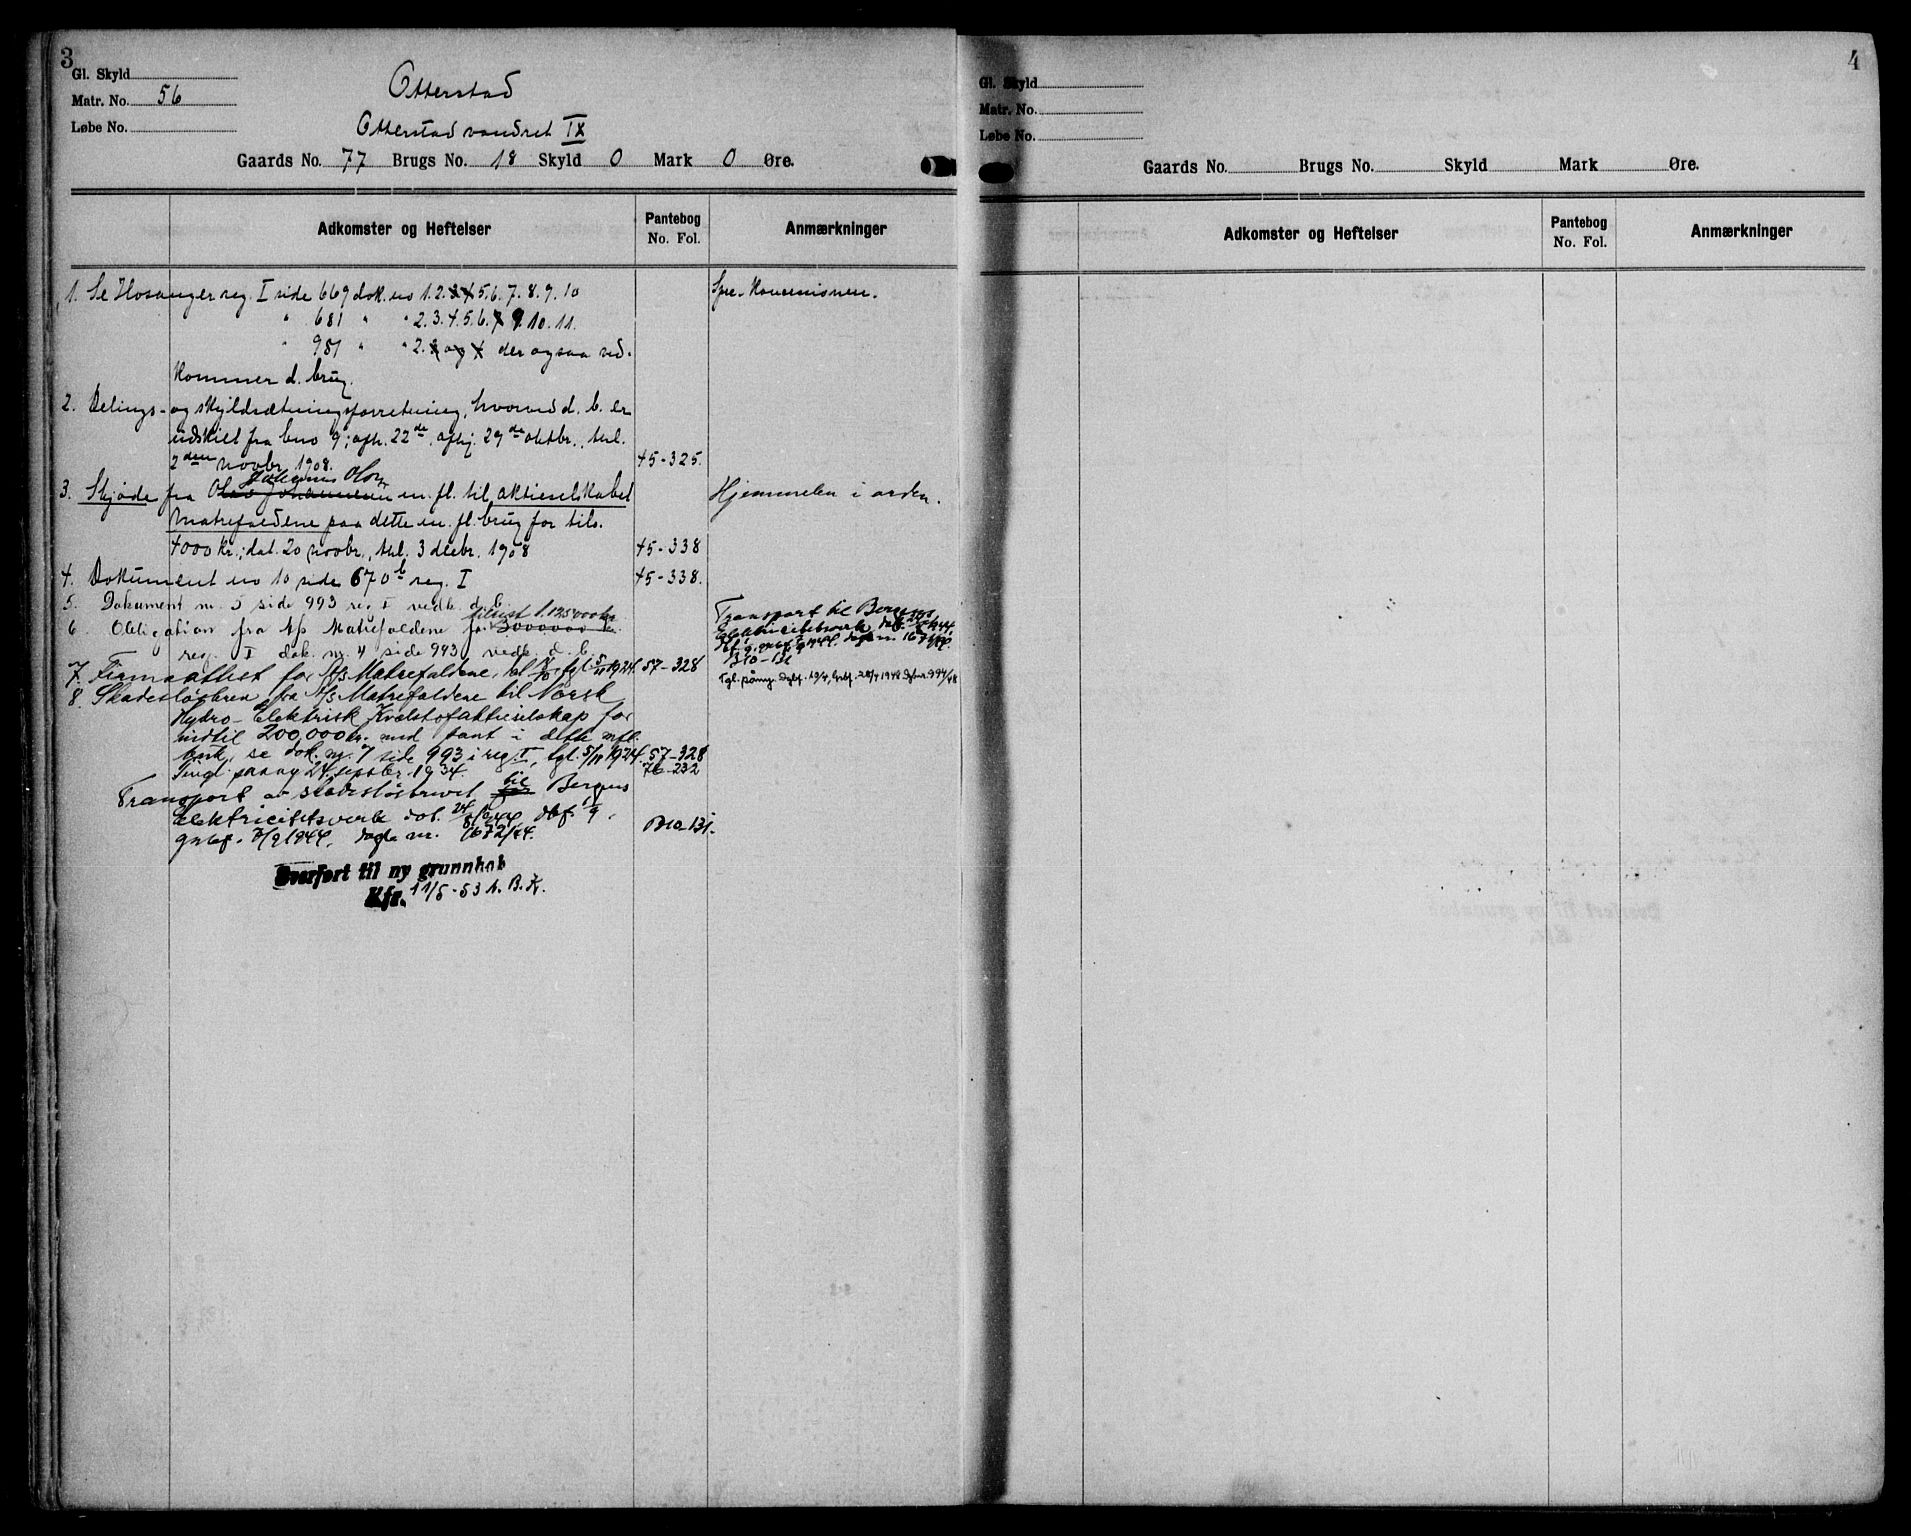 3
Gl. Skyld
Matr. No. 56
Løbe No.
Otterstad
Otterstadvandret IX
Gaards No. 77 Brugs No. 18 Skyld 0 Mark 0 Øre.
Adkomster og Heftelser
Pantebog
No. Fol.
Anmærkninger
1. Se Hosanger reg. I side 669 dok. no 1. 2. 3. 4. 5. 6. 7. 8. 9. 10
" 681 " " 2. 3. 4. 5. 6. 7. 9. 10. 11.
" 981 " " 2. 3 og 4 der ogsaa ved-
kommer d. brug.
2. Delings- og skyldsætningsforretning, hvorved d. b. er
udskilt fra bno 9; afh. 22de, afhj. 29de oktbr., thl.
2den novbr. 1908. 45-325.
Johannes Olsen
3. Skjøde fra Olav Johannesen m. fl. til aktieselskabet Hjemmelen i orden.
Matrefaldene paa dette m. fl. brug for tils.
4000 kr.; dat. 20 novbr., thl. 3 decbr. 1908 45-338
4. Dokument no 10 side 670b reg. I 45-338.
5. Dokument nr. 5 side 993 reg I vedk. d. b.
1.125000 kr
6 Obligation fra A/s Matrefaldene for 3000000 kr.
reg. I dok. nr. 4 side 943 vedk. d. b.
Transport til Bergens
Elektricitetsverk dat.
B10-131
7. Firmaattest for A/s Matrefaldene, tgl. 5/11 1924. 57-328
8. Skadesløsbrev fra A/s Matrefaldene til Norsk
Hydro-Elektrisk Kvælstofaktieselskap for
indtil 200,000 kr. med pant i dette mfl.
bruk, se dok. nr. 7 side 993 i reg. I, tgl. 5/11 1924. 57-328
Tingl. paany 24. septbr. 1934. 76-232
Transport av skadesløsbrevet til Bergens
Elektricitetsverk dat. 24/8 1944, dbf. 1/9,
gnbf. 7/9 1944, dagb. nr. 1672/44. B10-131.
Overført til ny grunnbok
Kfr. 11/5-53 A. B. K.
4
Gl. Skyld
Matr. No.
Løbe No.
Gaards No. Brugs No. Skyld Mark Øre.
Adkomster og Heftelser
Pantebog
No. Fol.
Anmærkninger